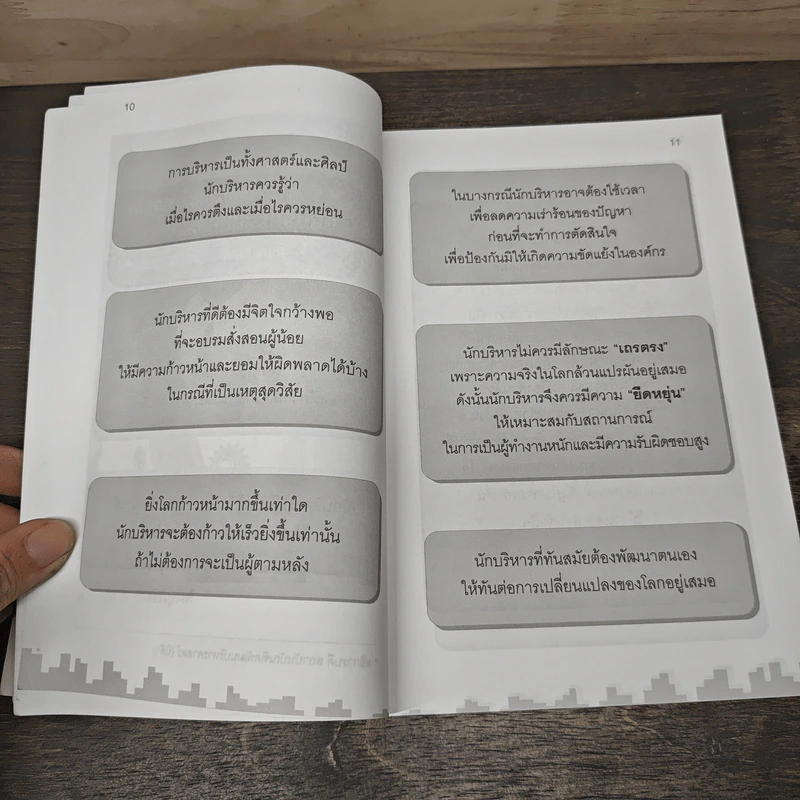 10
การบริหารเป็นทั้งศาสตร์และศิลป์
นักบริหารควรรู้ว่า
เมื่อไรควรตึงและเมื่อไรควรหย่อน
นักบริหารที่ดีต้องมีจิตใจกว้างพอ
ที่จะอบรมสั่งสอนผู้น้อย
ให้มีความก้าวหน้าและยอมให้ผิดพลาดได้บ้าง
ในกรณีที่เป็นเหตุสุดวิสัย
ยิ่งโลกก้าวหน้ามากขึ้นเท่าใด
นักบริหารจะต้องก้าวให้เร็วยิ่งขึ้นเท่านั้น
ถ้าไม่ต้องการจะเป็นผู้ตามหลัง
11
ในบางกรณีนักบริหารอาจต้องใช้เวลา
เพื่อลดความเร่าร้อนของปัญหา
ก่อนที่จะทำการตัดสินใจ
เพื่อป้องกันมิให้เกิดความขัดแย้งในองค์กร
นักบริหารไม่ควรมีลักษณะ “เถรตรง”
เพราะความจริงในโลกล้วนแปรผันอยู่เสมอ
ดังนั้นนักบริหารจึงควรมีความ “ยืดหยุ่น”
ให้เหมาะสมกับสถานการณ์
ในการเป็นผู้ทำงานหนักและมีความรับผิดชอบสูง
นักบริหารที่ทันสมัยต้องพัฒนาตนเอง
ให้ทันต่อการเปลี่ยนแปลงของโลกอยู่เสมอ